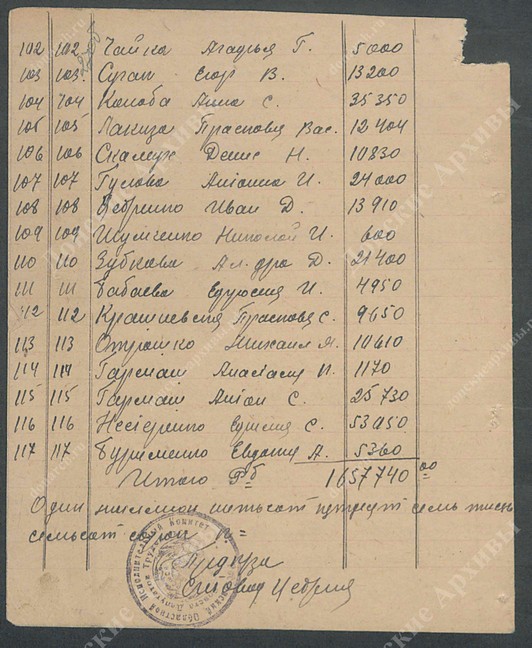 102 102 Чайка Агафья Г. 5000
103 103. Суган Егор В. 13200
104 104 Коноба Анна С. 35350
105 105 Лакиза Прасковья Вас. 12404
106 106 Денис Н. 10830
107 107 Гулова Антонина И. 24000
108 108 Иван Д. 13910
109 109 Шумченко Николай И. 600
110 110 Зубкова Ал-дра Д. 21400
111 111 Бабаева И. 4950
112 112 Прасковья С. 9650
113 113 Отрошко Михаил Я. 10610
114 114 Гармаш Анастасия И. 1170
115 115 Гармаш Антон С. 25730
116 116 Нестеренко С. 53950
117 117 Бурименко Евдокия А. 5360
Итого Рб 1657740 00
Один миллион шестьсот пятьдесят семь тысяч
семьсот сорок
Областной Исполнительный Комитет